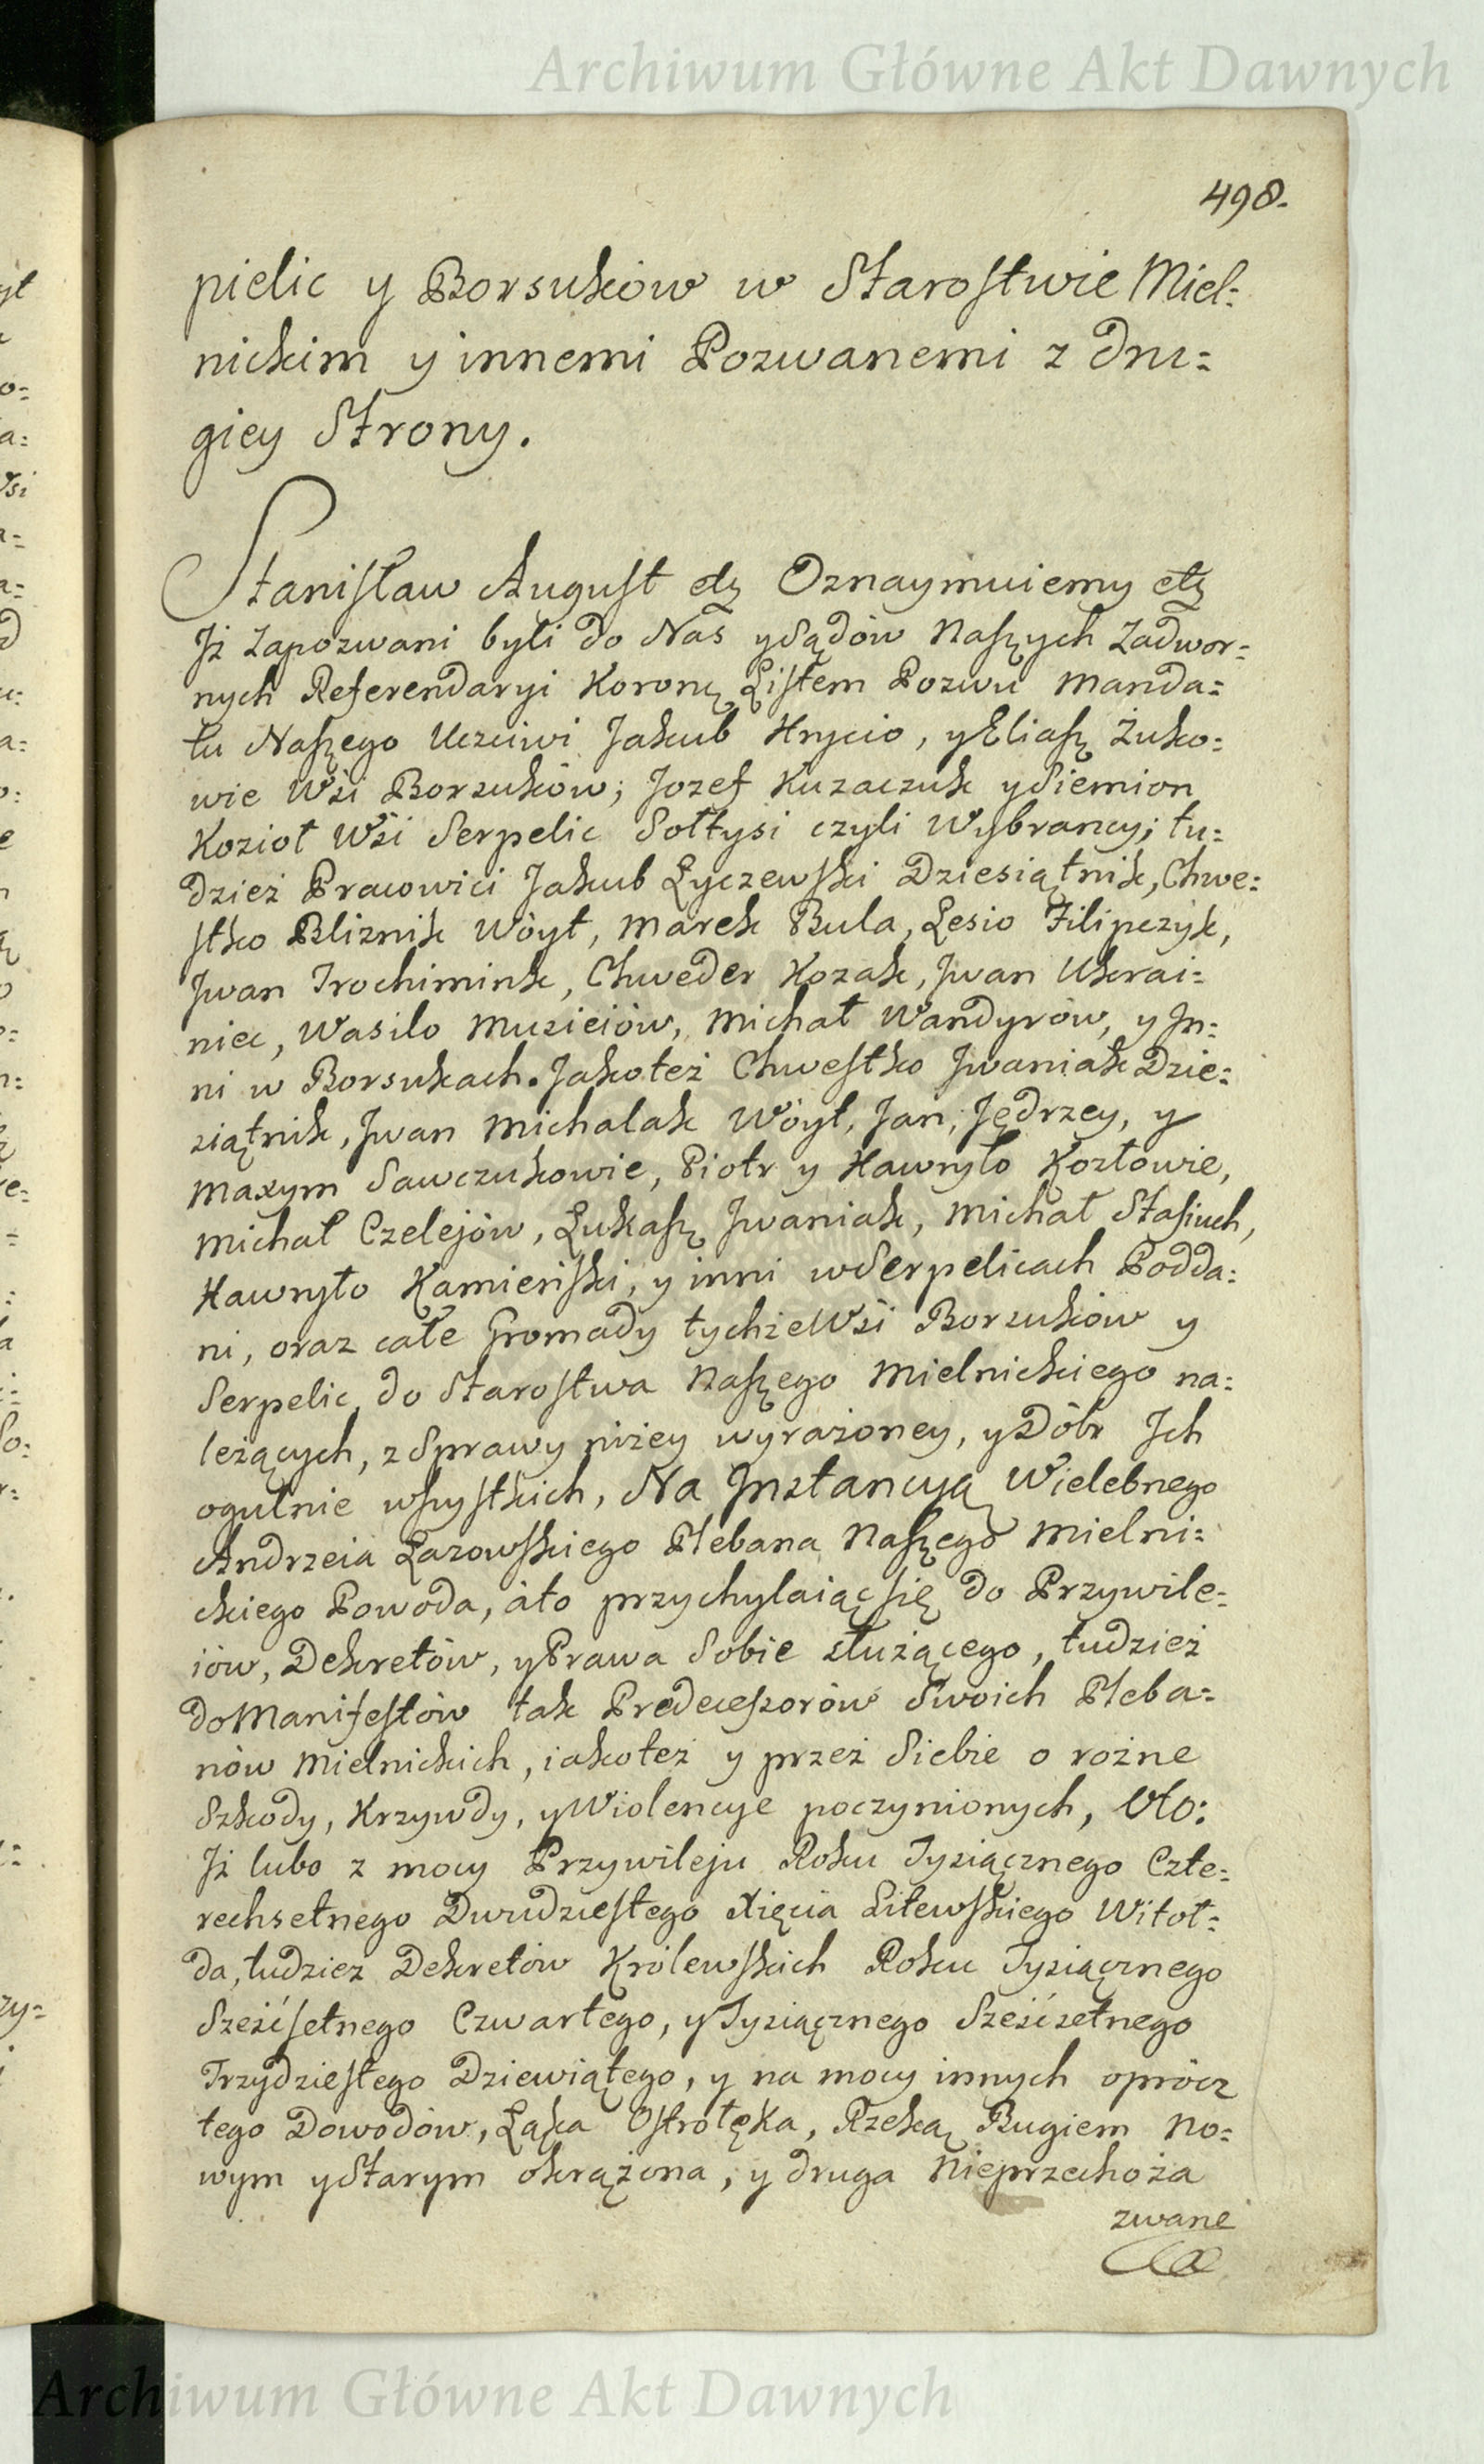 Archiwum Główne Akt Dawnych
498.
pielic y Borsuków w Starostwie Miel:
nickim y innemi Pozwanemi z dru:
giey Strony.
Stanisław August etc Oznaymuiemy etc
Jż Zapozwani byli do Nas y Sądów Naszych Zadwor:
nych Referendaryi Koronę Listem Pozwu Manda:
tu Naszego Uczciwi Jakub Hrycio, y Eliasz Żuko:
wie Wsi Borsuków; Jozef Kuzaczuk y Siemion
Kozioł Wsi Serpelic Sołtysi czyli Wybrancy; tu:
dzież Pracowici Jakub Łyczewski Dziesiątnik, Chwe:
stko Bliznik Wóyt, Marek Bula, Lesio Filipczyk,
Jwan Trochimink, Chweder Kozak, Jwan Ukrai:
niec, Wasilo Muzieiów, Michał Wandyrów, y Jn:
ni w Borsukach. Jakoteż Chwestko Jwaniak Dzie:
siątnik, Jwan Michalak Wóyt, Jan, Jędrzey, y
Maxym Sawczukowie, Piotr y Hawryło Kozłowie,
Michał Czelejów, Łukasz Jwaniak, Michał Stasiuch,
Hawryło Kamieński, y inni w Serpelicach Podda:
ni, oraz całe Gromady tychże Wsi Borsuków y
Serpelic, do Starostwa Naszego Mielnickiego na:
leżących, z Sprawy niżey wyrażoney, y Dóbr Jch
ogulnie wszystkich, Na Jnstancyą Wielebnego
Andrzeia Łazowskiego Plebana Naszego Mielni:
ckiego Powoda, áto przychylaiąc się do Przywile:
iów, Dekretów, y Prawa Sobie służącego, tudzież
do Manifestów tak Predecessorów Swoich Pleba:
nów Mielnickich, iakoteż y przeż Siebie o rożne
Szkody, Krzywdy, y Wiolencye poczynionych, Oto:
Jż lubo z mocy Przywileju Roku Tysiącznego Czte:
rechsetnego Dwudziestego Xięcia Litewskiego Witoł:
da, tudzież Dekretów Królewskich Roku Tysiącznego
Sześćsetnego Czwartego, y Tysiącznego Sześćsetnego
Trzydziestego Dziewiątego, y na mocy innych oprócz
tego Dowodów, Łąka Ostrołęka, Rzeką Bugiem No:
wym y Starym okrążona, y druga Nieprzechoża
zwane
Archiwum Główne Akt Dawnych